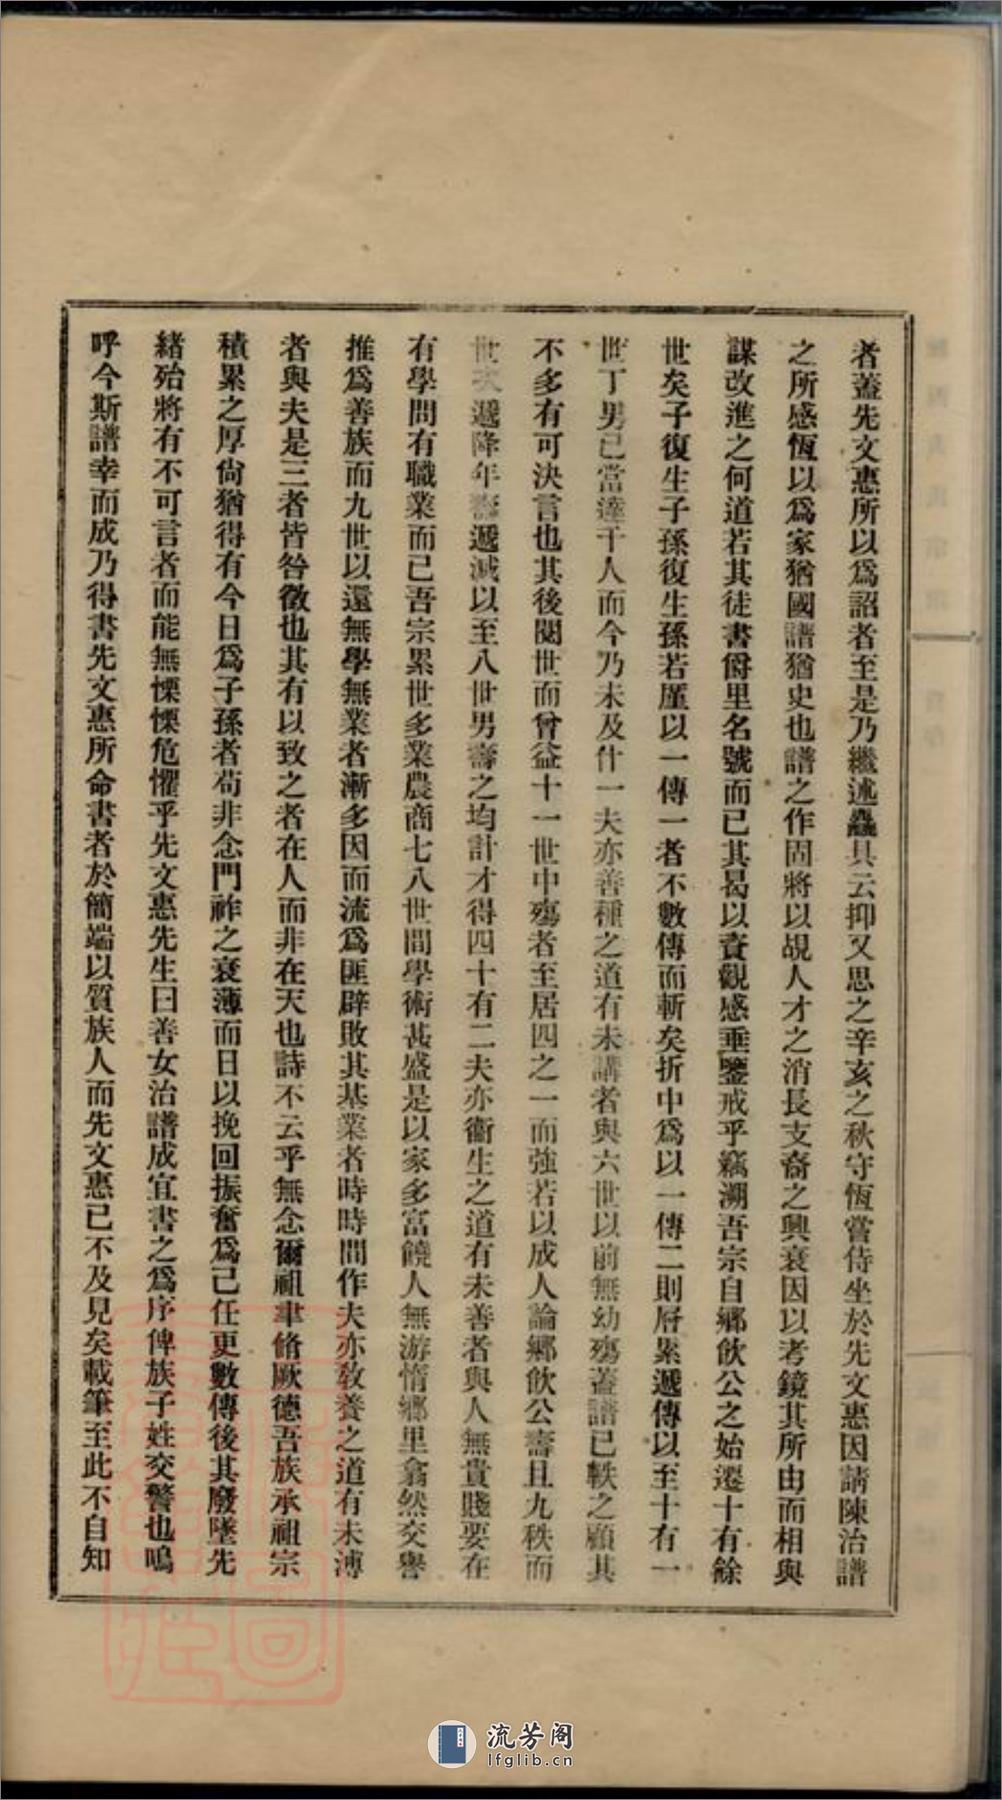 者蓋先文惠所以爲詔者至是乃繼述麤具云抑又思之辛亥之秋守恆嘗侍坐於先文惠因請陳治譜
之所感恆以爲家猶國譜猶史也譜之作固將以覘人才之消長支裔之興衰因以考鏡其所由而相與
謀改進之何道若其徒書爵里名號而已其曷以資觀感垂鑒戒乎竊溯吾宗自鄉飲公之始遷十有餘
世矣子復生子孫復生孫若厪以一傳一者不數傳而斬矣折中爲以一傳二則層累遞傳以至十有一
世丁男已當達千人而今乃未及什一夫亦善種之道有未講者與六世以前無幼殤蓋譜已軼之顧其
不多有可決言也其後閱世而曾益十一世中殤者至居四之一而強若以成人論鄉飲公壽且九秩而
世次遞降年壽遞減以至八世男壽之均計才得四十有二夫亦衞生之道有未善者與人無貴賤要在
有學問有職業而已吾宗累世多業農商七八世間學術甚盛是以家多富饒人無游惰鄉里翕然交譽
推爲善族而九世以還無學無業者漸多因而流爲匪辟敗其基業者時時間作夫亦敎養之道有未溥
者與夫是三者皆咎徵也其有以致之者在人而非在天也詩不云乎無念爾祖聿脩厥德吾族承祖宗
積累之厚尙猶得有今日爲子孫者苟非念門祚之衰薄而日以挽回振奮爲己任更數傳後其廢墜先
緒殆將有不可言者而能無慄慄危懼乎先文惠先生曰善女治譜成宜書之爲序俾族子姓交警也嗚
呼今斯譜幸而成乃得書先文惠所命書者於簡端以質族人而先文惠已不及見矣載筆至此不自知
流芳阁
lfglib.cn